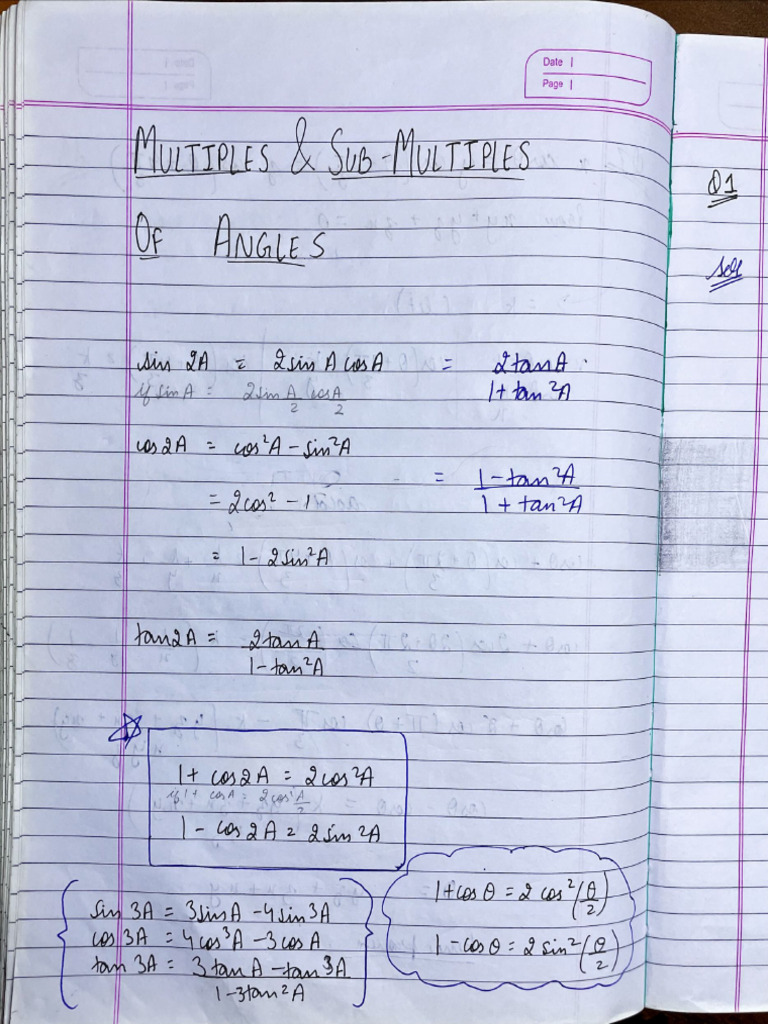 Date |
Page |
MULTIPLES & SUB-MULTIPLES
OF ANGLES
sin 2A = 2 sin A cos A = 2tanA / 1+tan²A
if sinA = 2sin A/2 cos A/2
cos2A = cos²A - sin²A
= 2cos² - 1 = 1-tan²A / 1+tan²A
= 1 - 2sin²A
tan2A = 2tanA / 1-tan²A
1 + cos2A = 2cos²A
if 1 + cosA = 2cos²A/2
1 - cos2A = 2sin²A
sin 3A = 3sinA - 4sin3A
cos 3A = 4cos³A - 3cosA
tan 3A = 3tanA - tan3A / 1-3tan²A
1+cos θ = 2 cos²(θ/2)
1-cosθ = 2 sin²(θ/2)
Q1
Sol